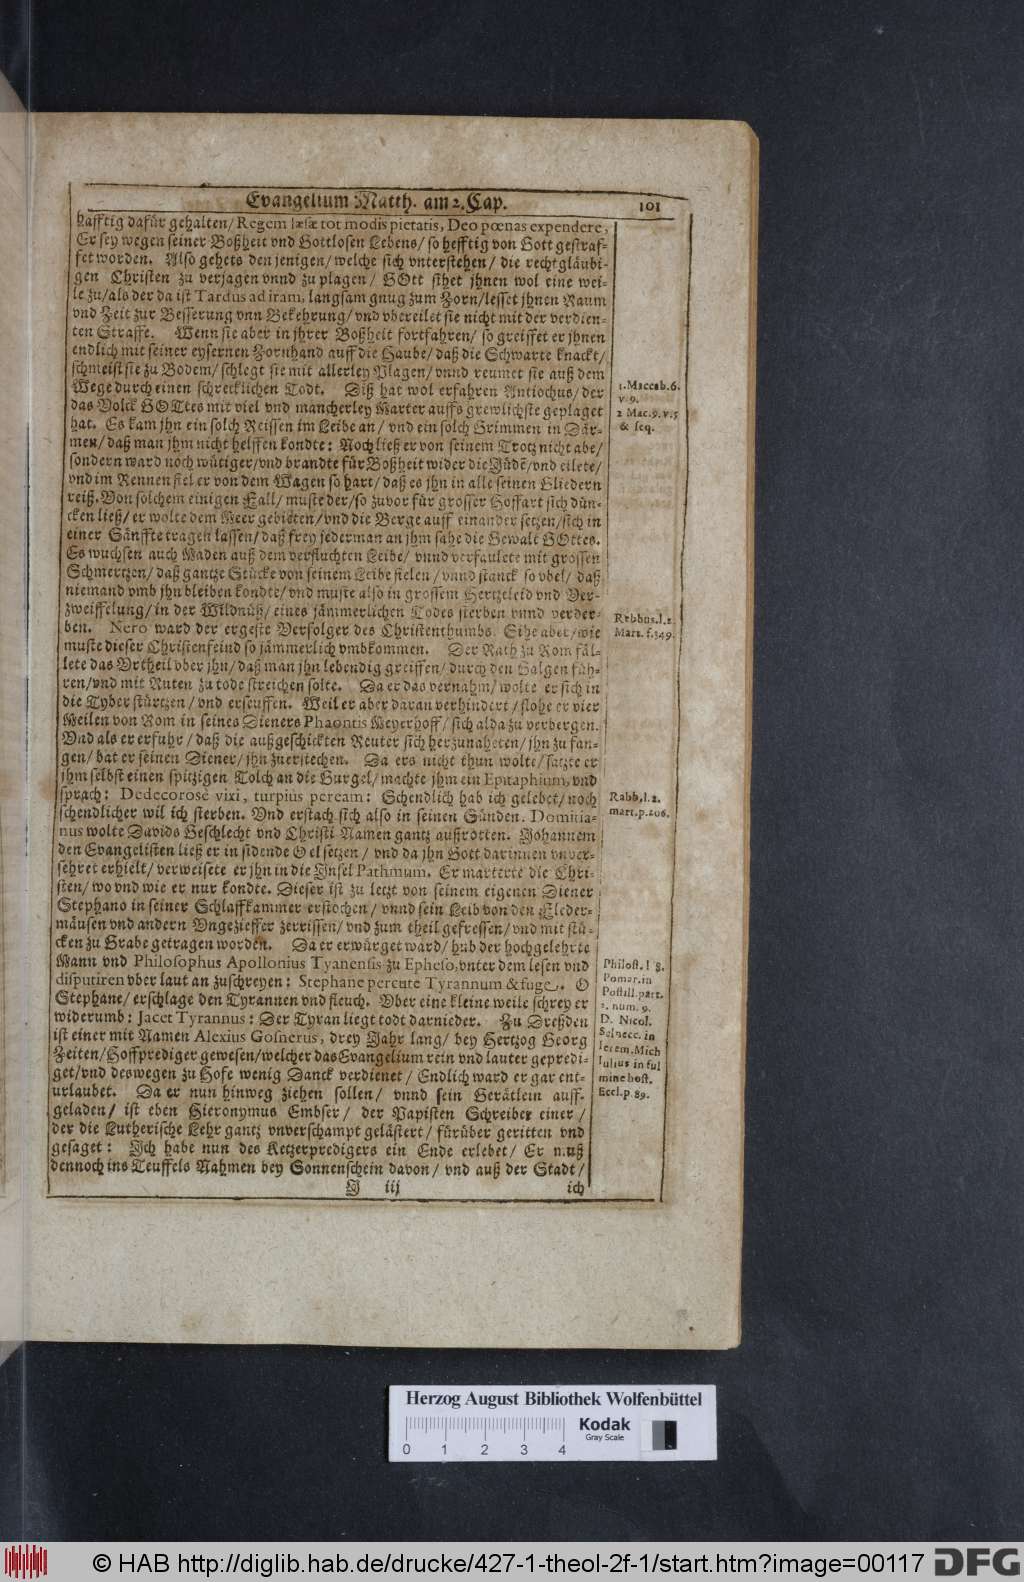 Evangelium Matth. am 2. Cap. 101
hafftig dafür gehalten/ Regem læsæ tot modis pietatis, Deo pœnas expendere,
Er sey wegen seiner Boßheit vnd Gottlosen Lebens/ so hefftig von Gott gestraf-
fet worden. Also gehets den jenigen/ welche sich vnterstehen/ die rechtgläubi-
gen Christen zu verjagen vnnd zu plagen/ GOtt sihet jhnen wol eine wei-
le zu/ als der da ist Tardus ad iram, langsam gnug zum Zorn/ lesset jhnen Raum
vnd Zeit zur Besserung vnn Bekehrung/ vnd vbereilet sie nicht mit der verdien-
ten Straffe. Wenn sie aber in jhrer Boßheit fortfahren/ so greiffet er jhnen
endlich mit seiner eysernen Zornhand auff die Haube/ daß die Schwarte knackt/
schmeist sie zu Bodem/ schlegt sie mit allerley Plagen/ vnnd reumet sie auß dem
Wege durch einen schrecklichen Todt. Diß hat wol erfahren Antiochus/ der
das Volck GOttes mit viel vnd mancherley Marter auffs grewlichste geplaget
hat. Es kam jhn ein solch Reissen im Leibe an/ vnd ein solch Grimmen in Där-
men/ daß man jhm nicht helffen kondte: Noch ließ er von seinem Trotz nicht abe/
sondern ward noch wütiger/ vnd brandte für Boßheit wider die Jüdē/ vnd eilete/
vnd im Rennen fiel er von dem Wagen so hart/ daß es jhn in alle seinen Gliedern
reiß. Von solchem einigen Fall/ muste der/ so zuvor für grosser Hoffart sich dün-
cken ließ/ er wolte dem Meer gebieten/ vnd die Berge auff einander setzen/ sich in
einer Sänffte tragen lassen/ daß frey jederman an jhm sahe die Gewalt GOttes.
Es wuchsen auch Maden auß dem verfluchten Leibe/ vnnd verfaulete mit grossen
Schmertzen/ daß gantze Stücke von seinem Leibe fielen/ vnnd stanck so vbel/ daß
niemand vmb jhn bleiben kondte/ vnd muste also in grossem Hertzeleid vnd Ver-
zweiffelung/ in der Wildnüß/ eines jämmerlichen Todes sterben vnnd verder-
ben. Nero ward der ergeste Verfolger des Christenthumbs. Sihe aber/ wie
muste dieser Christenfeind so jämmerlich vmbkommen. Der Rath zu Rom fäl-
lete das Vrtheil vber jhn/ daß man jhn lebendig greiffen/ durch den Galgen füh-
ren/ vnd mit Ruten zu tode streichen solte. Da er das vernahm/ wolte er sich in
die Tyber stürtzen/ vnd erseuffen. Weil er aber daran verhindert/ flohe er vier
Meilen von Rom in seines Dieners Phaontis Meyerhoff/ sich alda zu verbergen.
Vnd als er erfuhr/ daß die außgeschickten Reuter sich herzunaheten/ jhn zu fan-
gen/ bat er seinen Diener/ jhn zuerstechen. Da ers nicht thun wolte/ satzte er
jhm selbst einen spitzigen Tolch an die Gurgel/ machte jhm ein Epitaphium, vnd
sprach: Dedecorosè vixi, turpius peream: Schendlich hab ich gelebet/ noch
schendlicher wil ich sterben. Vnd erstach sich also in seinen Sünden. Domitia-
nus wolte Davids Geschlecht vnd Christi Namen gantz außrotten. Johannem
den Evangelisten ließ er in sidende Oel setzen/ vnd da jhn Gott darinnen vnver-
sehret erhielt/ verweisete er jhn in die Insel Pathmum. Er marterte die Chri-
sten/ wo vnd wie er nur kondte. Dieser ist zu letzt von seinem eigenen Diener
Stephano in seiner Schlaffkammer erstochen/ vnnd sein Leib von den Fleder-
mäusen vnd andern Vngezieffer zerrissen/ vnd zum theil gefressen/ vnd mit stü-
cken zu Grabe getragen worden. Da er erwürget ward/ hub der hochgelehrte
Mann vnd Philosophus Apollonius Tyanensis zu Epheso, vnter dem lesen vnd
disputiren vber laut an zuschreyen: Stephane percute Tyrannum & fuge. O
Stephane/ erschlage den Tyrannen vnd fleuch. Vber eine kleine weile schrey er
widerumb: Jacet Tyrannus: Der Tyran liegt todt darnieder. Zu Dreßden
ist einer mit Namen Alexius Gosnerus, drey Jahr lang/ bey Hertzog Georg
Zeiten/ Hoffprediger gewesen/ welcher das Evangelium rein vnd lauter gepredi-
get/ vnd deswegen zu Hofe wenig Danck verdienet/ Endlich ward er gar ent-
urlaubet. Da er nun hinweg ziehen sollen/ vnnd sein Gerätlein auff-
geladen/ ist eben Hieronymus Embser/ der Papisten Schreiber einer/
der die Lutherische Lehr gantz vnverschampt gelästert/ fürüber geritten vnd
gesaget: Ich habe nun des Ketzerpredigers ein Ende erlebet/ Er muß
dennoch ins Teuffels Nahmen bey Sonnenschein davon/ vnd auß der Stadt/
J iij ich
1. Maccab. 6.
v. 9.
2 Mac. 9. v. 5
& seq.
Rabbus. l. 2.
Mart. f. 349.
Rabb. l. 2.
mart. p. 206.
Philost. l 8.
Pomar. in
Postill. part.
2. num. 9.
D. Nicol.
Selnecc. in
Ierem. Mich
Iulius in ful
mine host.
Eccl. p. 89.
Herzog August Bibliothek Wolfenbüttel
0 1 2 3 4
Kodak
Gray Scale
© HAB http://diglib.hab.de/drucke/427-1-theol-2f-1/start.htm?image=00117 DFG